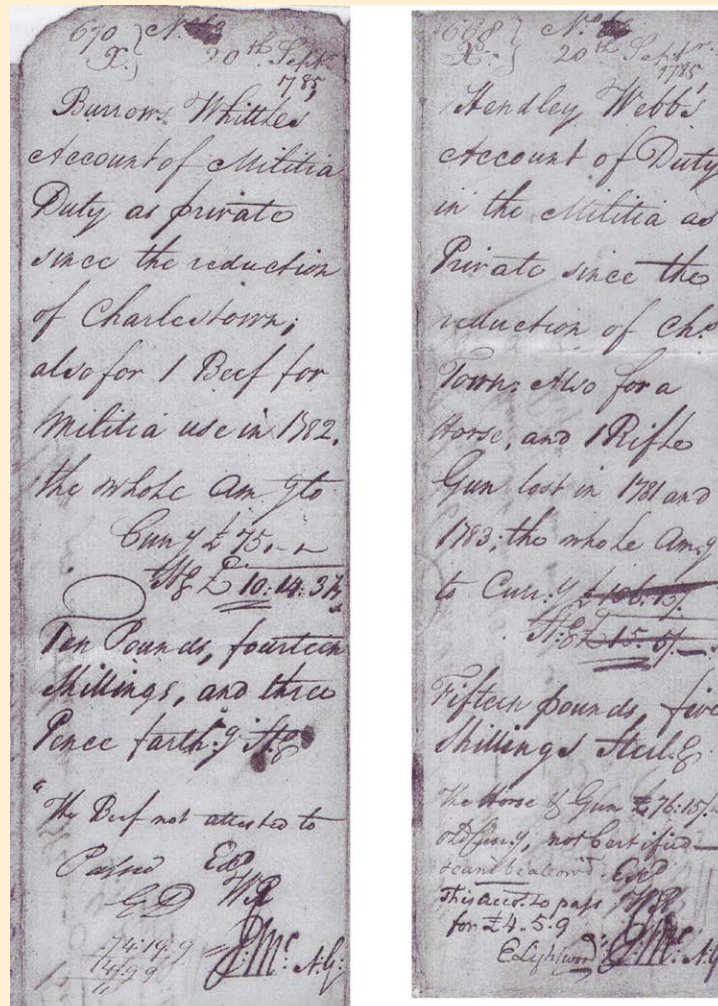 670 } No.
X. } 20th Septr
1785
Burrows Whittles
Account of Militia
Duty as private
since the reduction
of Charlestown;
also for 1 Beef for
Militia use in 1782.
the whole Am.g to
Curr.y £ 75.-"-
St.g £ 10:14:3¼
Ten Pounds, fourteen
Shillings, and three
Pence farth.g St.g
"The Beef not attested to
Passed Exd
GD W.R
74:19:9
14:9 9
J: Mc: A:G:
668 } No.
X. } 20th Septr.
1785
Hendley Webb's
Account of Duty
in the Militia as
Private since the
reduction of Chs
Town. Also for a
Horse, and 1 Rifle
Gun lost in 1781 and
1783; the whole Am.g
to Curr.y £106:15/.
St.g £15:5/-
Fifteen pounds, five
Shillings Sterl.g
The Horse & Gun £76:15/.
old Curr.y, not Certified
& cannot be allow'd. Exd
This Acct. to pass W.R
for £4.5.9
E Lightwood J: Mc: A:G